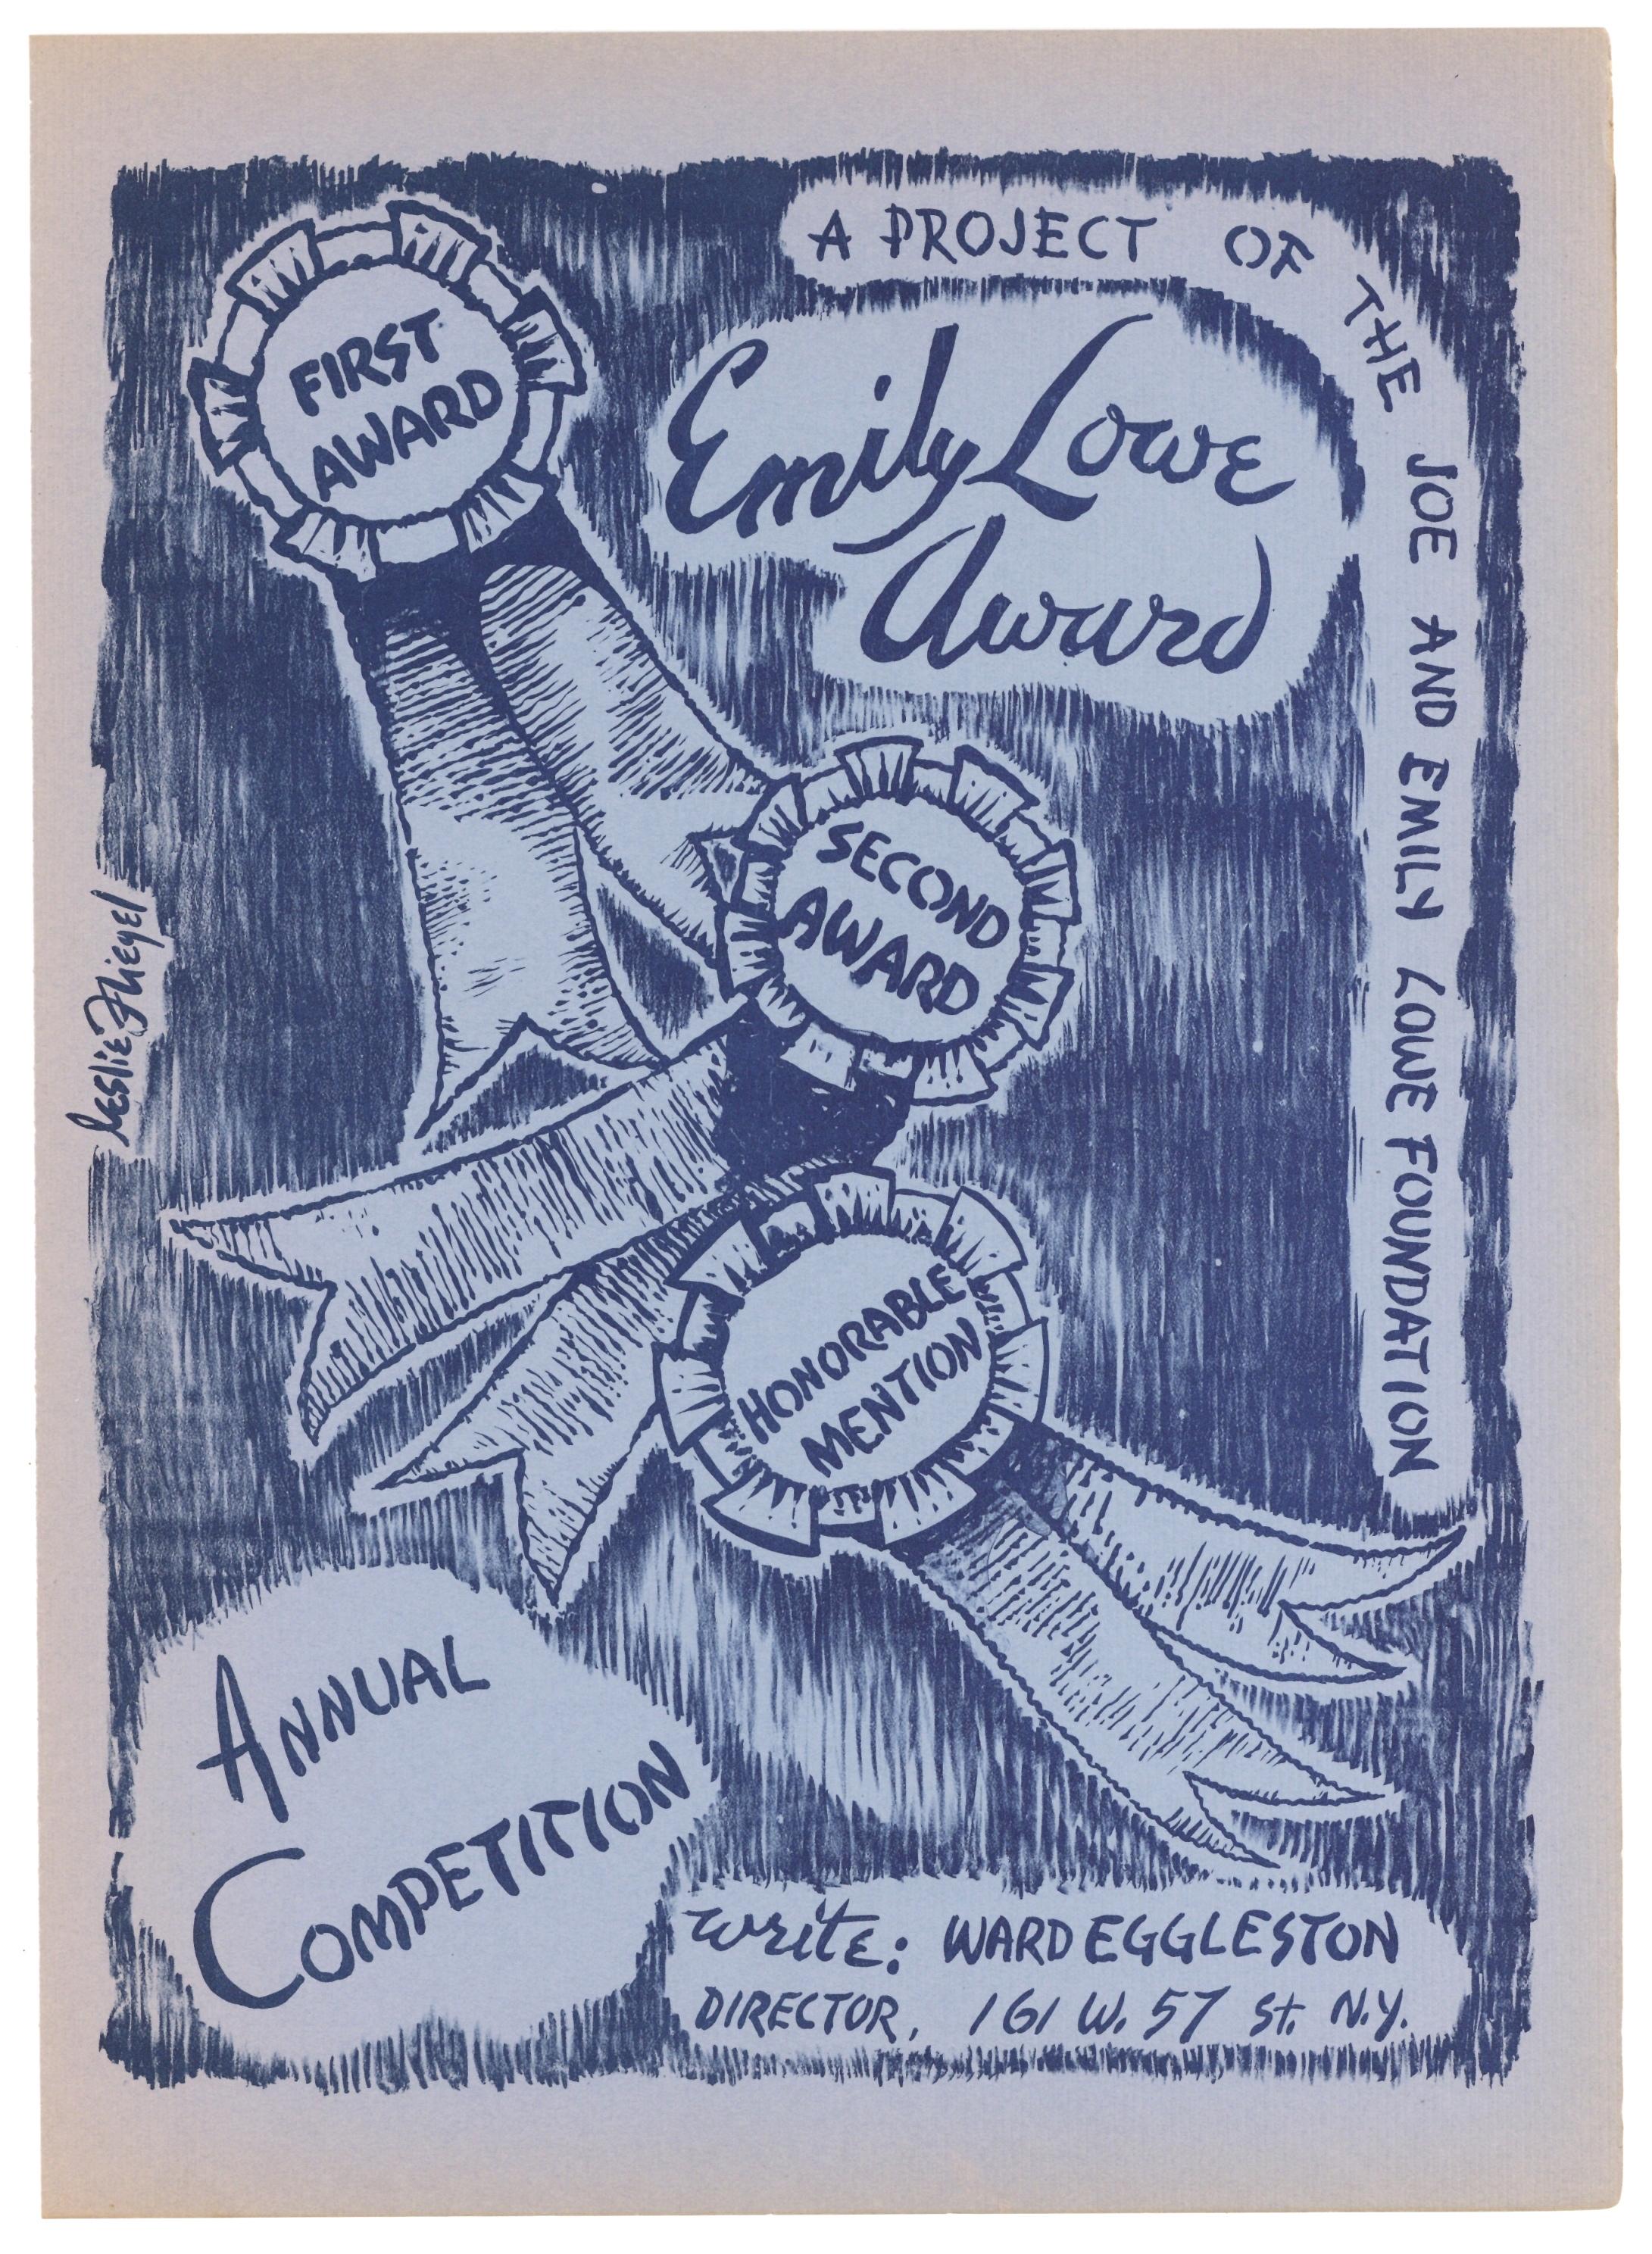 A PROJECT OF THE JOE AND EMILY LOWE FOUNDATION
Emily Lowe
Award
FIRST
AWARD
SECOND
AWARD
HONORABLE
MENTION
Leslie Fliegel
ANNUAL
COMPETITION
write: WARD EGGLESTON
DIRECTOR, 161 W. 57 St. N.Y.